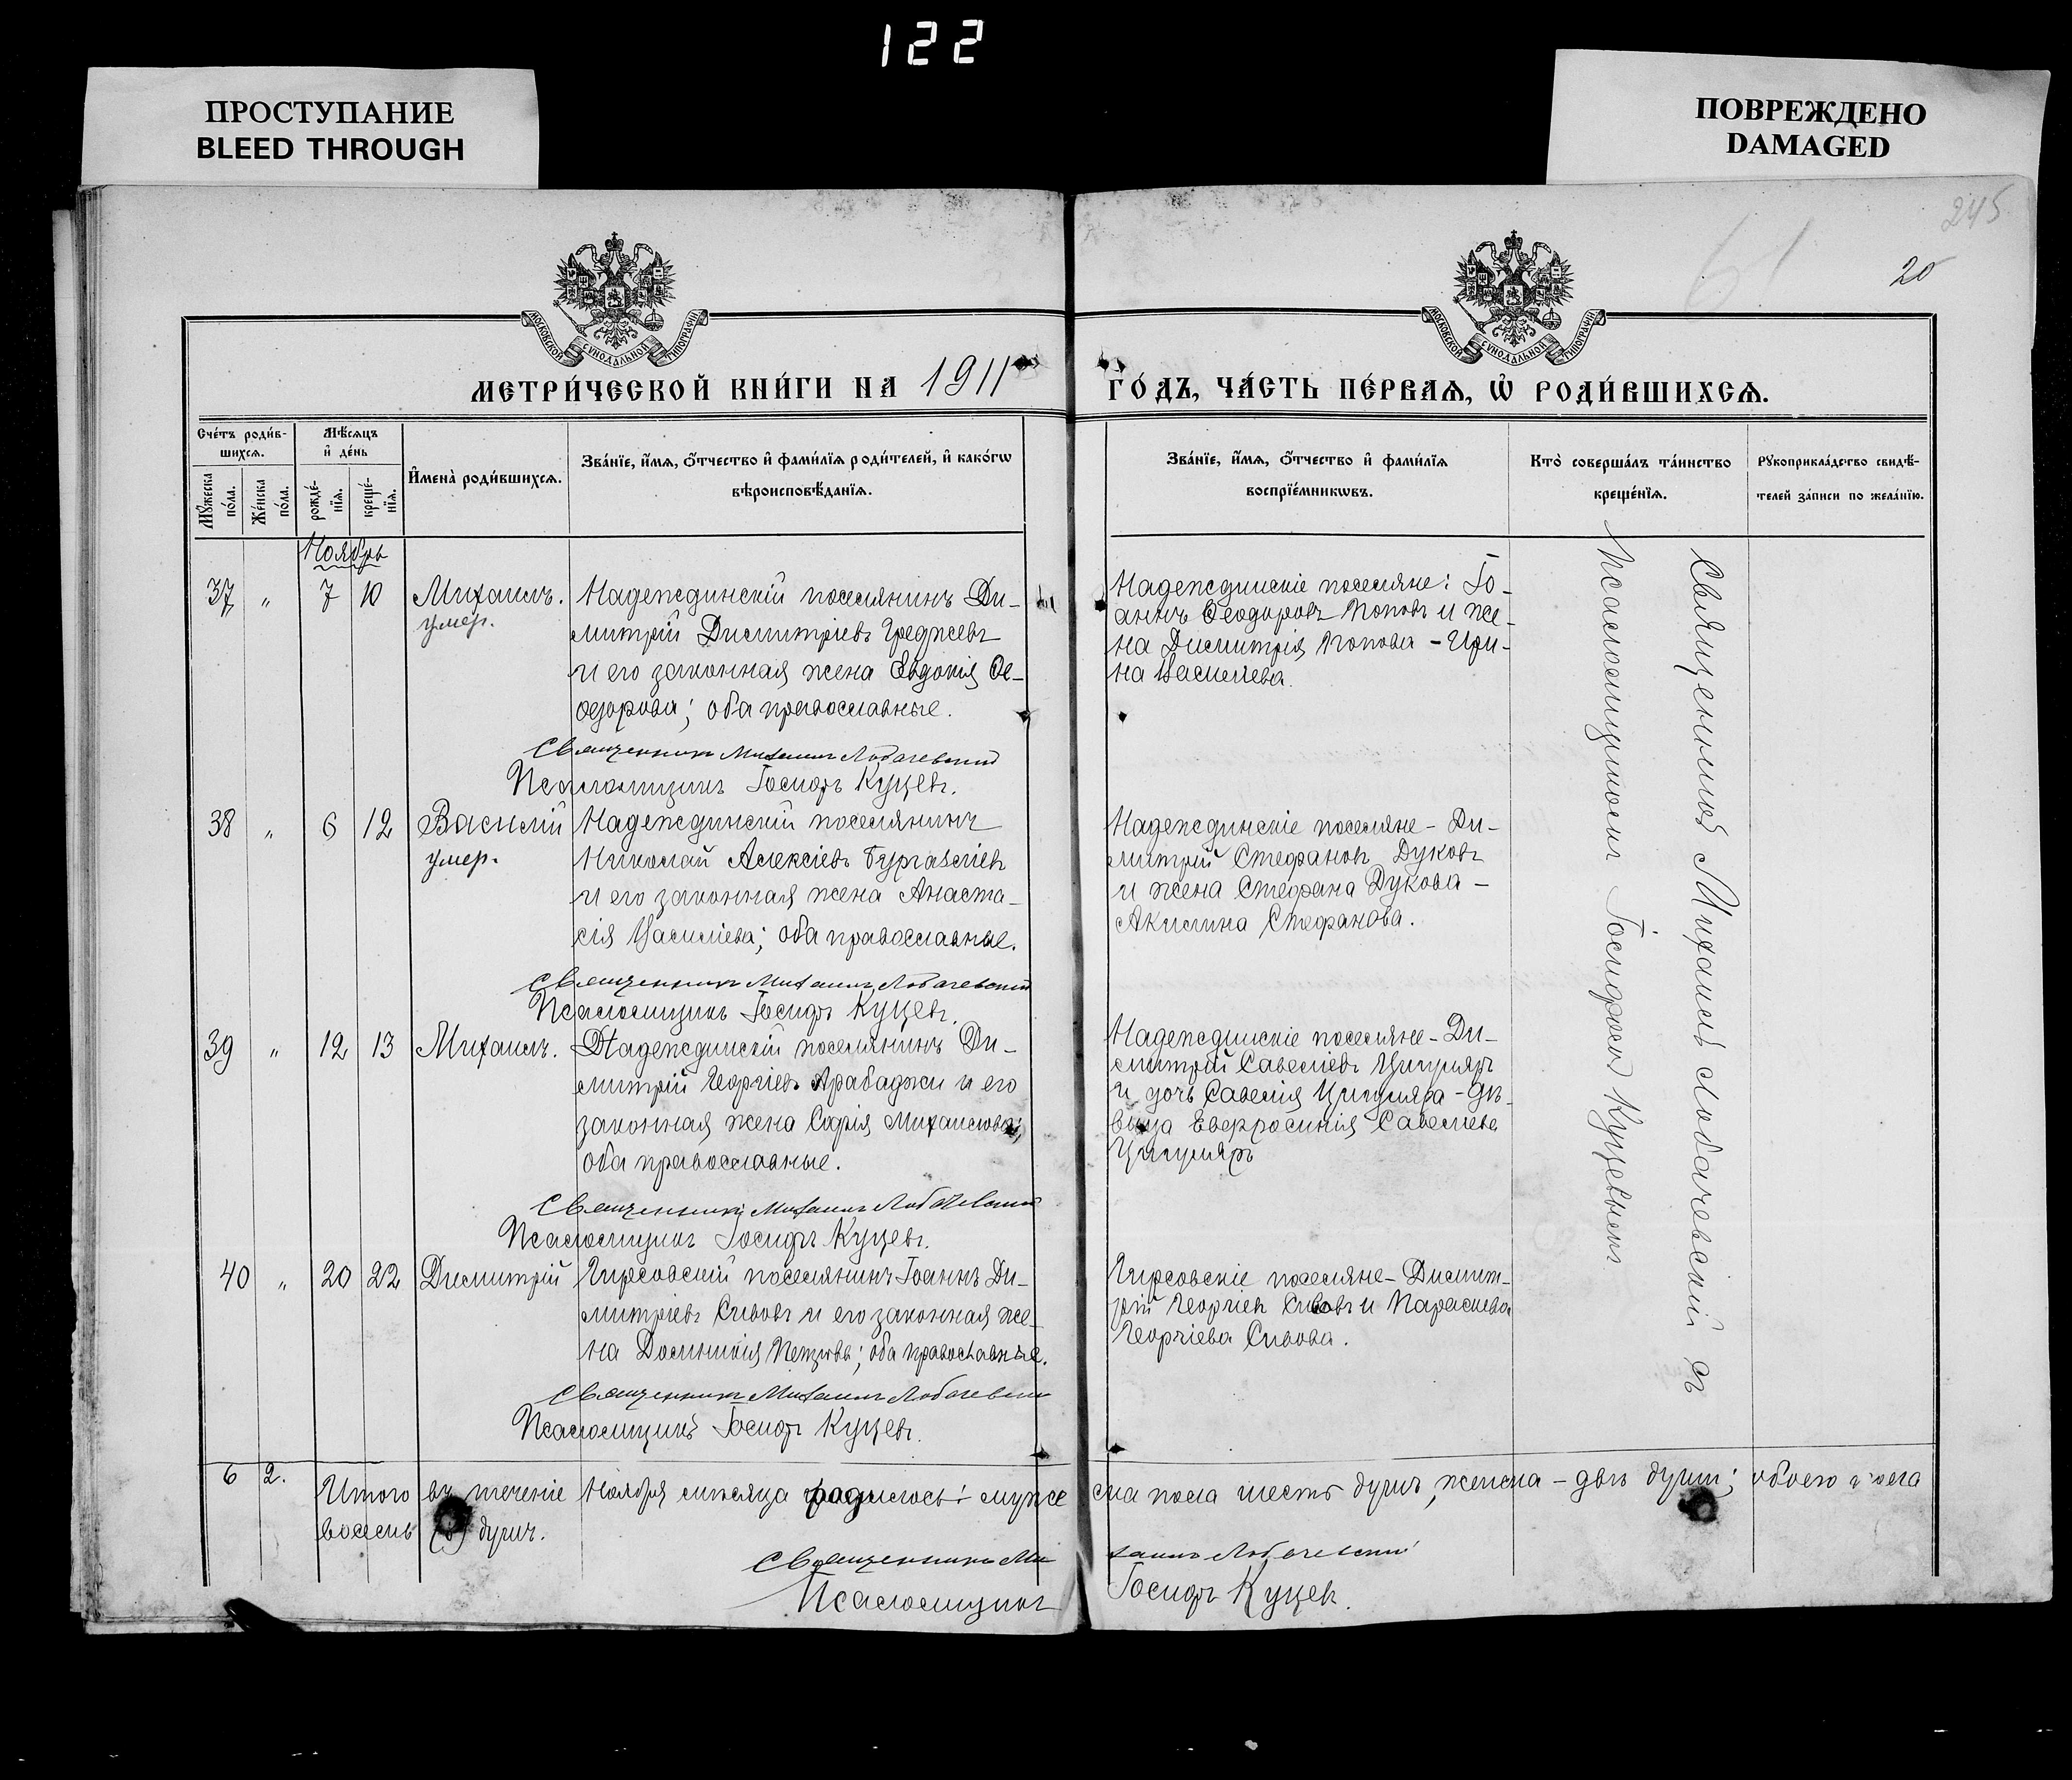 122
ПРОСТУПАНИЕ
BLEED THROUGH
ПОВРЕЖДЕНО
DAMAGED
245
61
20
МОСКОВСКОЙ СУНОДАЛЬНОЙ ТИПОГРАФІИ
МОСКОВСКОЙ СУНОДАЛЬНОЙ ТИПОГРАФІИ
МЕТРИ́ЧЕСКОЙ КНИ́ГИ НА 1911 ГО́ДЪ, ЧА́СТЬ ПЕ́РВАѦ, Ѡ҆ РОДИ́ВШИХСѦ.
Сче́тъ роди́в-
шихсѧ.
Мꙋ́жеска по́ла.
Же́нска по́ла.
Мѣ́сѧцъ
и҆ де́нь
рожде́-
нїѧ.
креще́-
нїѧ.
И҆мена̀ роди́вшихсѧ.
Зва́нїе, и҆́мѧ, ѻ҆́тчество и҆ фами́лїѧ роди́телей, и҆ како́гѡ
вѣроисповѣ́данїѧ.
Зва́нїе, и҆́мѧ, ѻ҆́тчество и҆ фами́лїѧ
воспрїе́мникѡвъ.
Кто̀ соверша́лъ та́инство
креще́нїѧ.
Рꙋкоприкла́дство свидѣ́-
телей за́писи по жела́нїю.
Ноябрь
37 " 7 10 Михаилъ.
умер.
Надеждинскій поселянинъ Ди-
митрій Димитріевъ Греджевъ
и его законная жена Евдокія Ѳе-
одорова; оба православные.
Священникъ Михаилъ Лобачевский
Псаломщикъ Іосифъ Куцевъ.
Надеждинскіе поселяне: Іо-
аннъ Ѳеодоровъ Поповъ и же-
на Димитрія Попова - Ири-
на Васильева.
38 " 6 12 Василій
умер.
Надеждинскій поселянинъ
Николай Алексіевъ Бургазліевъ
и его законная жена Анаста-
сія Василіева; оба православные.
Священникъ Михаилъ Лобачевский
Псаломщикъ Іосифъ Куцевъ.
Надеждинскіе поселяне - Ди-
митрій Стефановъ Дуковъ
и жена Стефана Дукова -
Акилина Стефанова.
39 " 12 13 Михаилъ.
Надеждинскій поселянинъ Ди-
митрій Георгіевъ Арабаджи и его
законная жена Софія Михаилова;
оба православные.
Священникъ Михаилъ Лобачевский
Псаломщикъ Іосифъ Куцевъ.
Надеждинскіе поселяне - Ди-
митрій Савеліевъ Цигуляръ
и дочь Савелія Цигуляра - дѣ-
вица Евфросинія Савелиева
Цигуляръ
40 " 20 22 Димитрій
Гирсовскій поселянинъ Іоаннъ Ди-
митріевъ Сивовъ и его законная же-
на Домникія Петрова; оба православные.
Священникъ Михаилъ Лобачевский
Псаломщикъ Іосифъ Куцевъ.
Гирсовскіе поселяне - Димит-
рій Георгіевъ Сивовъ и Параскева
Георгіева Сивова.
Священникъ Михаилъ Лобачевскій съ
Псаломщикомъ Іосифомъ Куцевымъ
6 2.
Итого въ теченіе Ноября мѣсяца родилось: муже ска пола шесть душъ, женска - двѣ души; обоего пола
восемь (8) душъ.
Священникъ Михаилъ Лобачевский
Псаломщикъ Іосифъ Куцевъ.